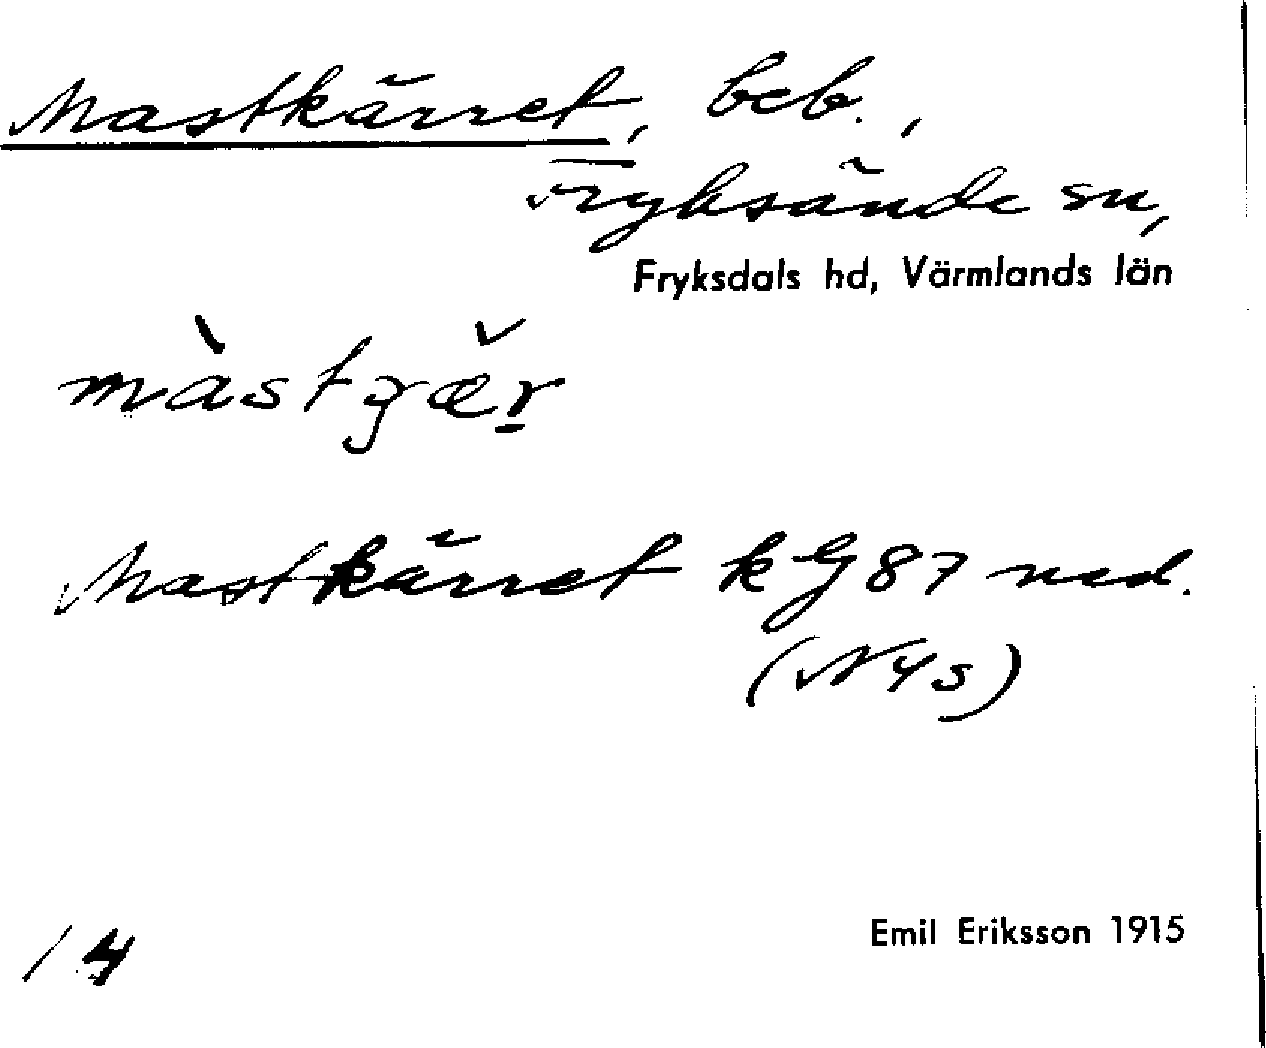 Mastkärret, beb.,
Fryksände sn,
Fryksdals hd, Värmlands län
màstɡæ̌r̲
Mastkärret kG87 ned.
(NYs)
Emil Eriksson 1915
14